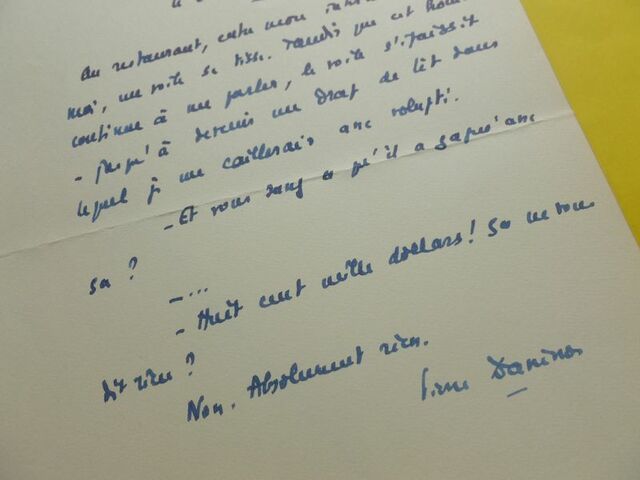 Au restaurant, entre mon
moi, un voile se tisse. Tandis que cet
continue à me parler, le voile s'épaissit
- jusqu'à devenir un drap de lit dans
lequel je me caillerais avec volupté.
- Et vous savez qu'il a gagné avec
sa ?
- ...
- Huit cent mille dollars ! Sa ne vous
dit rien ?
Non. Absolument rien.
Pierre Daninos